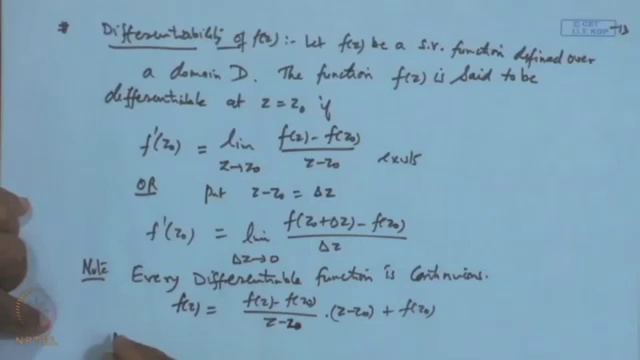 # Differentiability of f(z) :- Let f(z) be a s.v. function defined over
a domain D. The function f(z) is said to be
differentiable at z = z₀ if
f'(z₀) = lim z→z₀ (f(z) - f(z₀))/(z - z₀) exists
OR put z - z₀ = Δz
f'(z₀) = lim Δz→0 (f(z₀+Δz) - f(z₀))/Δz
Note Every Differentiable function is continuous.
f(z) = (f(z) - f(z₀))/(z - z₀) · (z - z₀) + f(z₀)
© CET
I.I.T. KGP
13
NPTEL